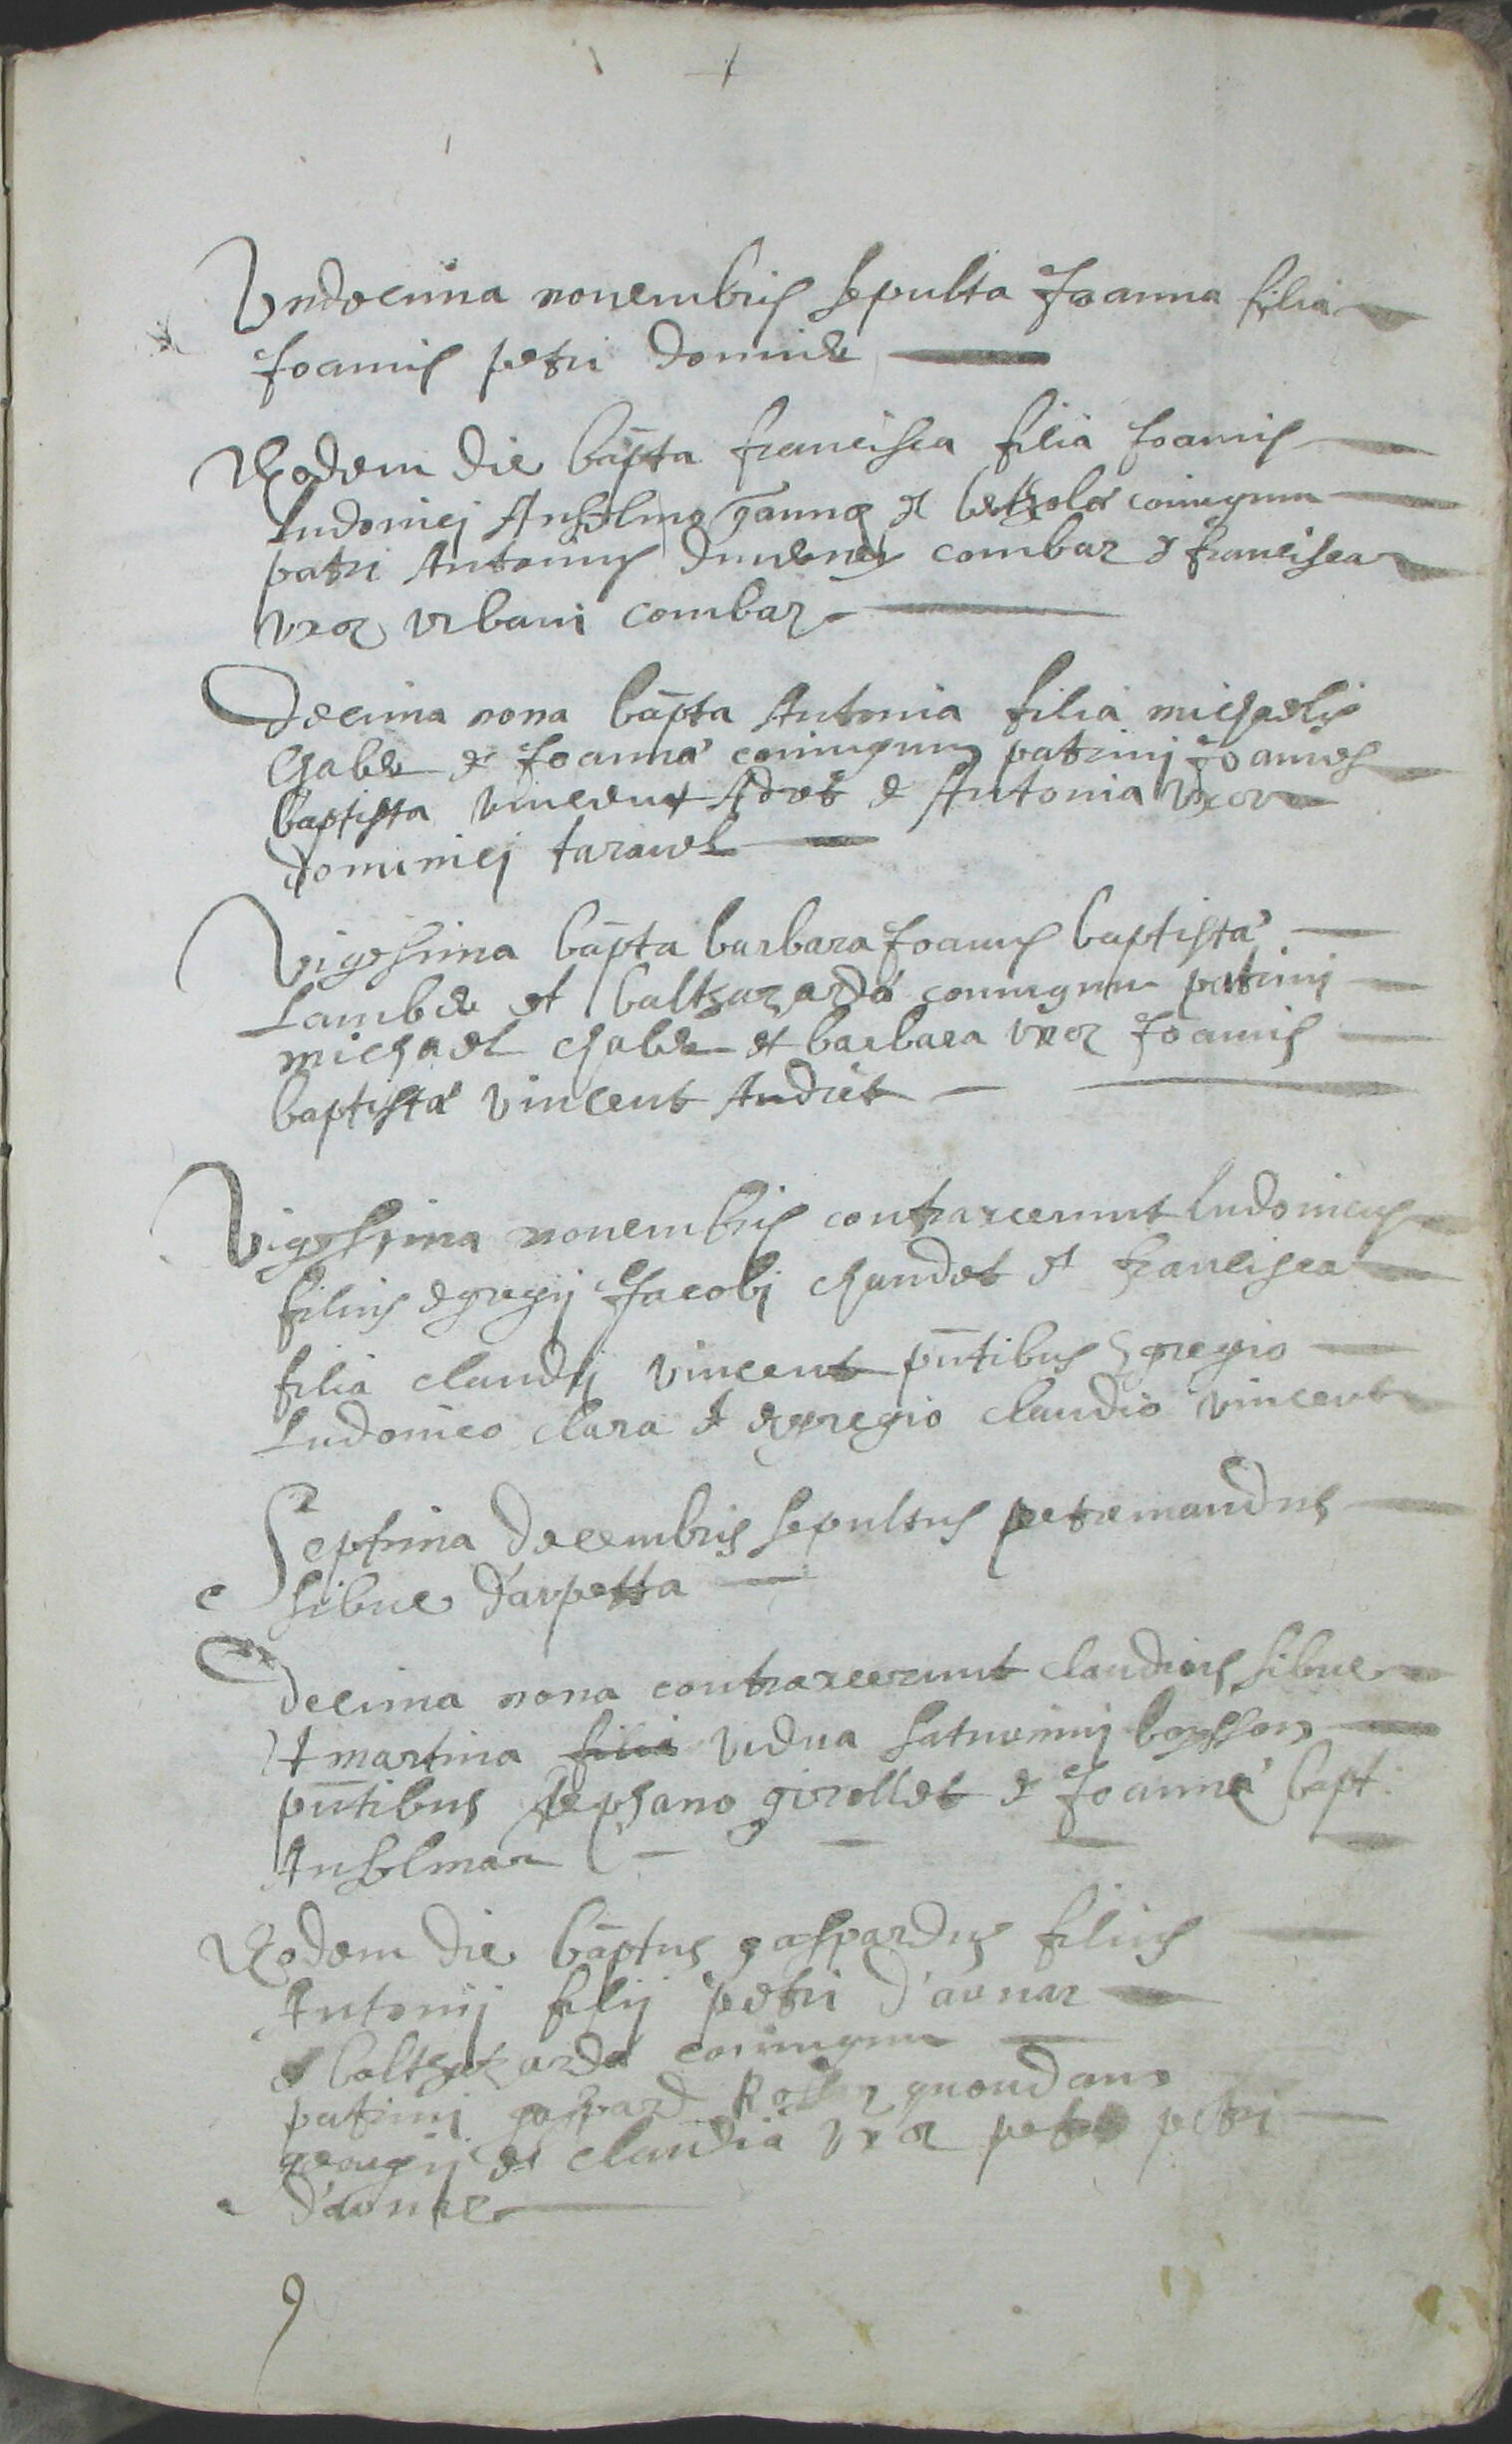 Undecima novembris sepulta Joanna filia
Joannis petri donnde
Eodem die bapta francisca filia Joannis
Ludovicj Anselmo et conjugum
patri Antonius combar et francisca
uxor urbani combar
Decima nona bapta Antonia filia michaelis
Chable et Joannæ conjugum patrinj Joannes
baptista vincent Adret et Antonia uxor
dominicj taravel
Vigesima bapta barbara Joannis baptistæ
Lambde et baltzazardæ conjugum patrinj
michael chable et barbara uxor Joannis
baptistæ vincent Andret
Vigesima novembris contraxerunt Ludovicus
filius egregij Jacobj chandet et francisca
filia claudij vincent pntibus egregio
Ludovico clara et egregio claudio vincent
Septima decembris sepultus petremandus
sibue d'arpetta
Decima nona contraxerunt claudius sibue
et martina filia vidua saturninj boysson
pntibus stephano girollet et Joanne bapt:
Anselmar
Eodem die baptus gaspardus filius
Antonij filij petri d'avnar
et baltzazardæ conjugum
patrinj gaspard quondam
georgij et claudia uxor petri petri
d'avnar